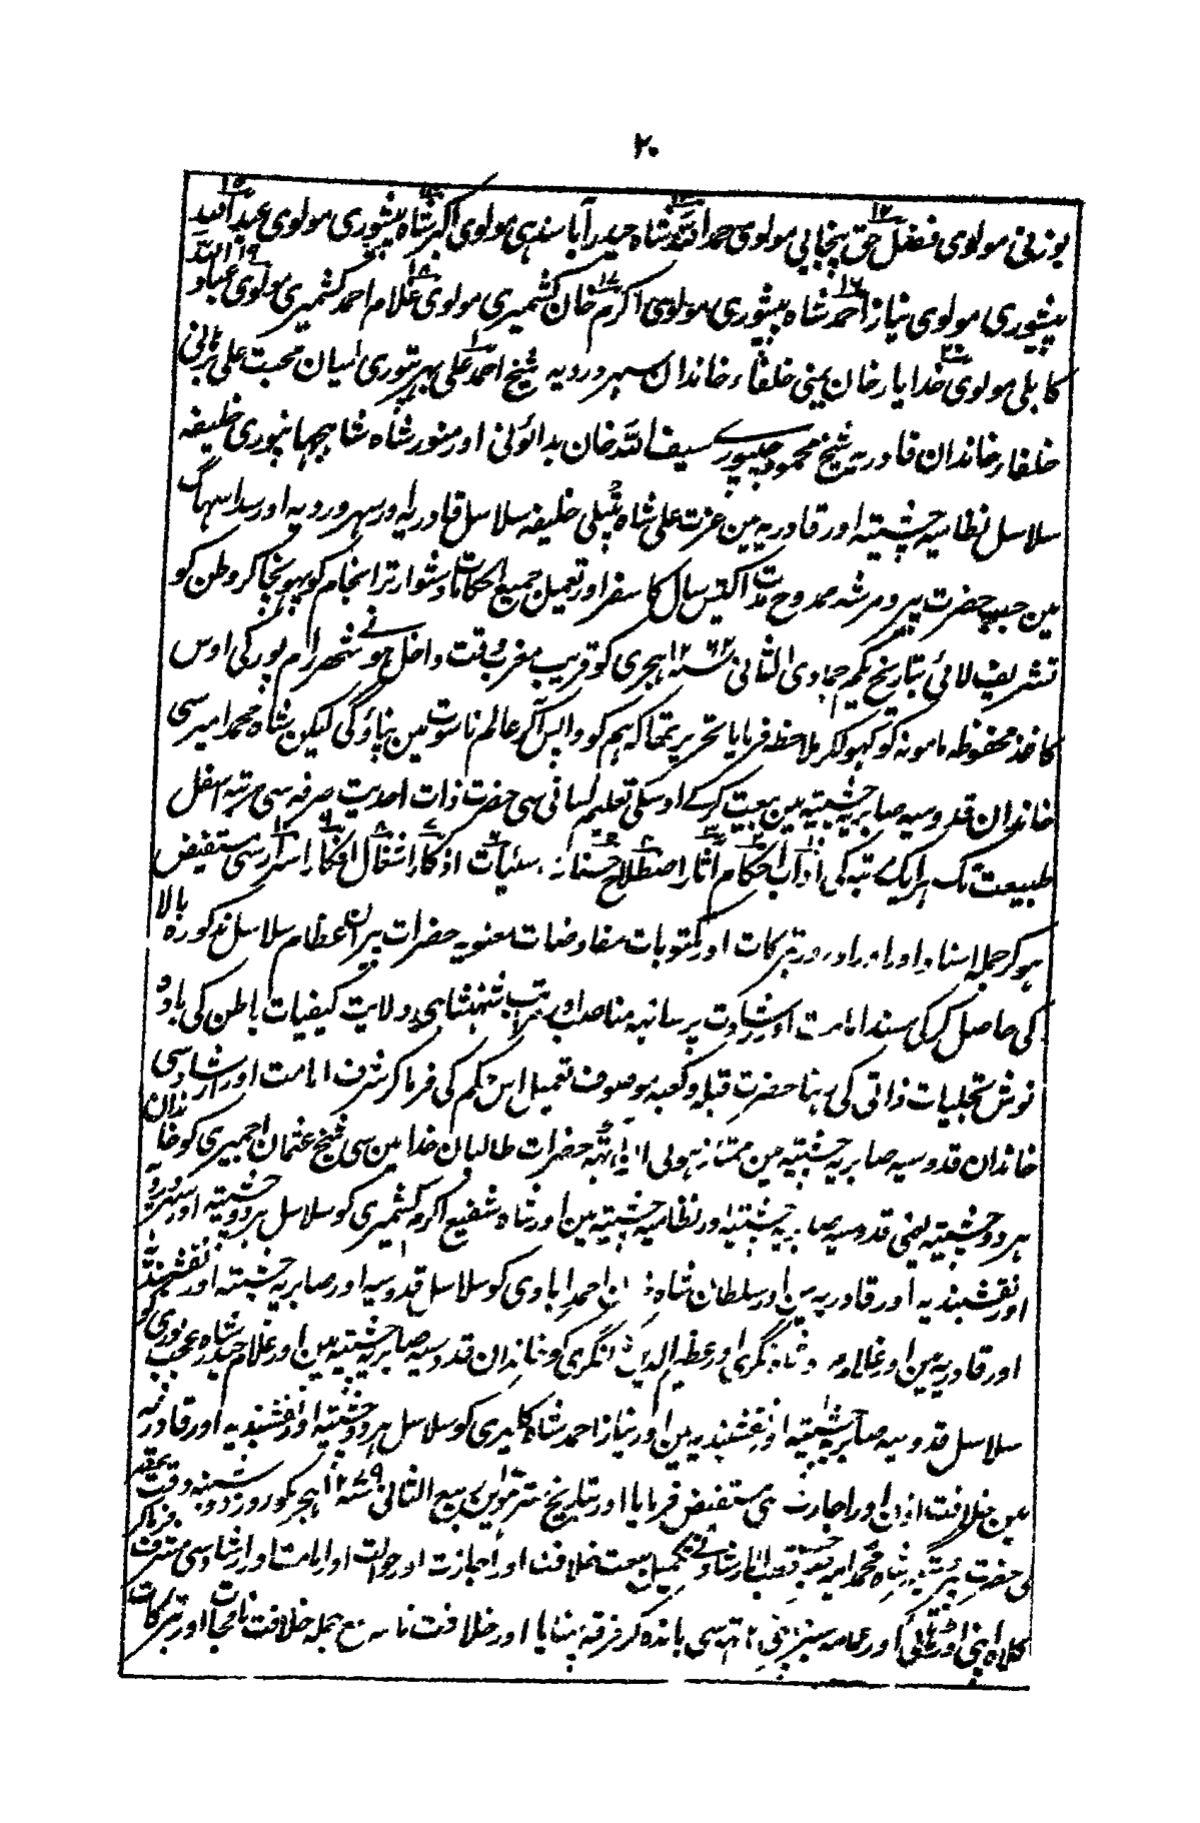 ۲۰
بوزئی مولوی فضل حق پنجابی مولوی حمد اللہ شاہ حیدرآباد سندہی مولوی اکبر شاہ پیشوری مولوی عبد اللہ
پیشوری مولوی نیاز احمد شاہ پیشوری مولوی اکرم خان کشمیری مولوی غلام احمد کشمیری مولوی عباد اللہ
کابلی مولوی خدا یار خان یمنی خلفاء خاندان سہروردیہ شیخ احمد علی میان محبت علی
خلفاء خاندان قادریہ شیخ محمود جیپوری سیف اللہ خان بدائونی اور منور شاہ شاہجہانپوری خلیفہ
سلاسل نظامیہ چشتیہ اور قادریہ مین عزت علی شاہ خلیفہ سلاسل قادریہ اور سہروردیہ اور سدا سہاگ
مین جب حضرت پیر و مرشد ممدوح مدت اکتیس سال کا سفر اور تعمیل جمیع احکامات دشوار تر انجام کو پہونچا کر وطن کو
تشریف لائی بتاریخ یکم جمادی الثانی ۱۲۶۲ ہجری کو قریب مغرب وقت داخل ہونے شہر رام پور کی اوس
کاغذ محفوظہ مامونہ کو کہولکر ملاحظہ فرمایا تحریر تہا کہ ہم کو واپس آکر عالم ناسوت مین نپاؤگی لیکن شاہ محمد امیر سی
خاندان قدوسیہ صابریہ چشتیہ مین بیعت کرکے اوسکی تعلیم لسانی سی حضرت ذات احدیت صرفہ سی مرتبہ اسفل
طبیعت تک ہر ایک رتبہ کی آداب احکام آثار اصطلاح حسنات سئیات اذکار اشغال افکار اسرار سی مستفیض
ہوکر جملہ اسناد اور اوراد اور تبرکات اور مکتوبات مفاوضات معنویہ حضرات پیران عظام سلاسل مذکورہ بالا
کی حاصل کرکی سند امامت اور ارشادت پر سانہہ مناصب اور مراتب شہنشاہی ولایت کیفیات باطن کی بادہ
نوش تجلیات ذاتی کی رہنا حضرت قبلہ و کعبہ موصوف تعمیل اس حکم کی فرماکر شرف امامت اور ارشاد سی
خاندان قدوسیہ صابریہ چشتیہ مین ممتاز ہوئی حضرات طالبان خدا مین سی شیخ عثمان اجمیری کو خاندان
ہر دو چشتیہ یعنی قدوسیہ صابریہ چشتیہ اور نظامیہ چشتیہ مین اور شاہ شفیع اکرم کشمیری کو سلاسل ہر دو چشتیہ اور سہروردیہ
اور نقشبندیہ اور قادریہ مین اور سلطان شاہ احمد ابادی کو سلاسل قدوسیہ اور صابریہ چشتیہ اور نقشبندیہ
اور قادریہ مین اور نگری اور عظیم الدین نگری کو خاندان قدوسیہ صابریہ چشتیہ مین اور غلام حیدر شاہ کو
سلاسل قدوسیہ صابریہ چشتیہ اور نقشبندیہ مین اور نیاز احمد شاہ کو سلاسل ہر دو چشتیہ اور نقشبندیہ اور قادریہ
مین خلافت اذن اور اجازت سی مستفیض فرمایا اور بتاریخ ربیع الثانی ۱۲۷۹ ہجری کو روز دو شنبہ وقت
حضرت شاہ محمد امیر نے تکمیل بیعت خلافت اور اجازت اور امامت اور ارشاد سی مشرف فرماکر
کلاہ اپنی اور عمامہ سبز اپنی ہاتہہ سی باندہ کر خرقہ پہنایا اور خلافت نامہ مع جملہ خلافت نامجات اور تبرکات